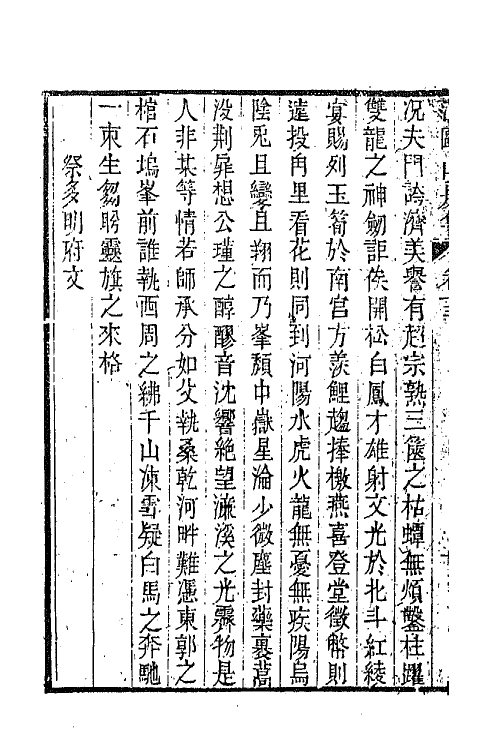 况夫門誇濟美譽有超宗熟三篋之枯蟫無煩鑿柱躍
雙龍之神劒詎俟開松白鳳才雄射文光於北斗紅綾
宴賜列玉筍於南宫方羨鯉趨捧檄燕喜登堂徵幣則
遠投冉里看花則同到河陽水虎火龍無憂無疾陽烏
陰兎且孌且翔而乃峯頹中嶽星淪少微塵封藥裹蒿
没荆扉想公瑾之醇醪音沈響絶望濂溪之光霽物是
人非某等情若師承分如父執桑乾河畔難憑東郭之
棺石塢峯前誰執西周之紼千山凍雪疑白馬之奔馳
一束生芻盻靈旗之來格
祭多明府文